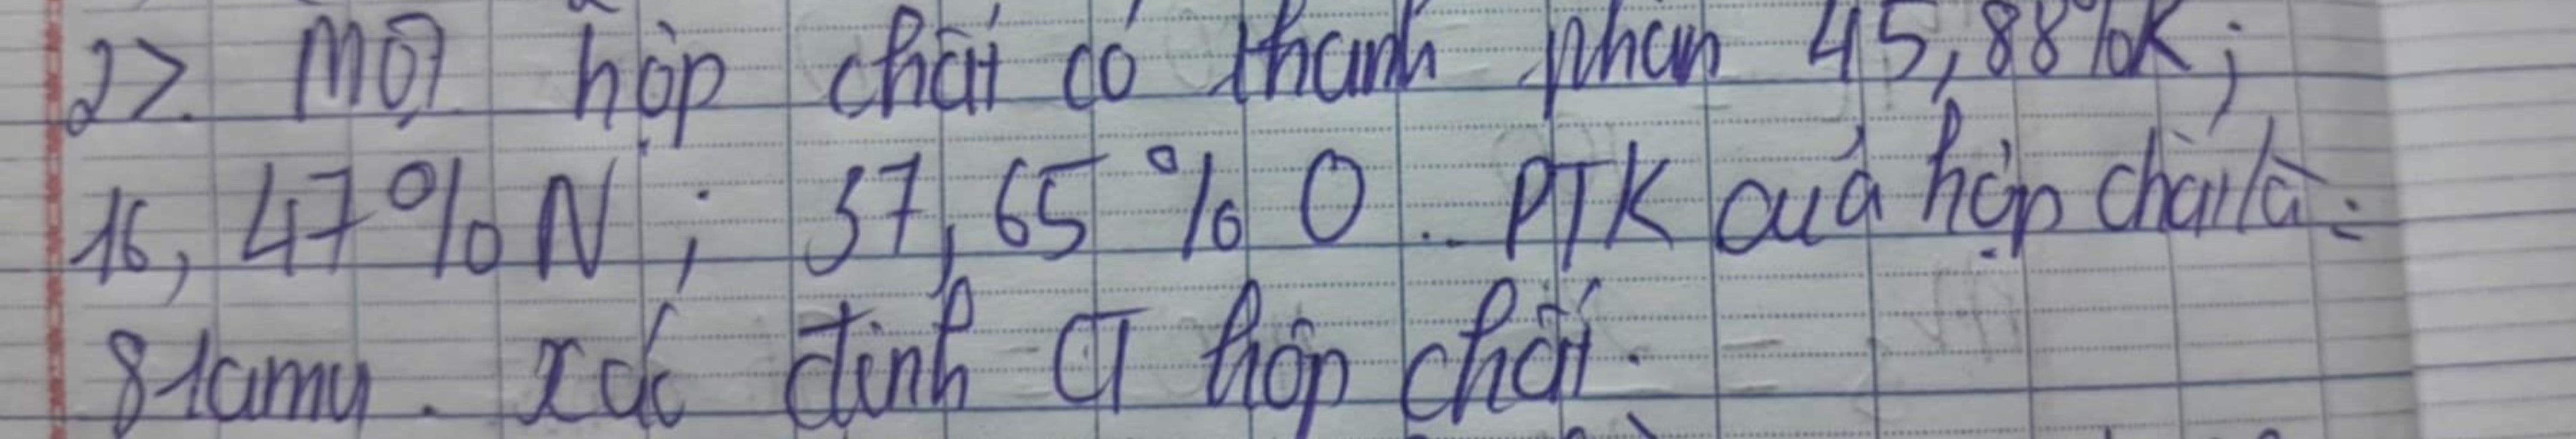 2>. Một hợp chất có thành phần 45,88%K;
16,47%N; 37,65%O. PTK quả hợp chất là:
81amu. xác định CT hợp chất.